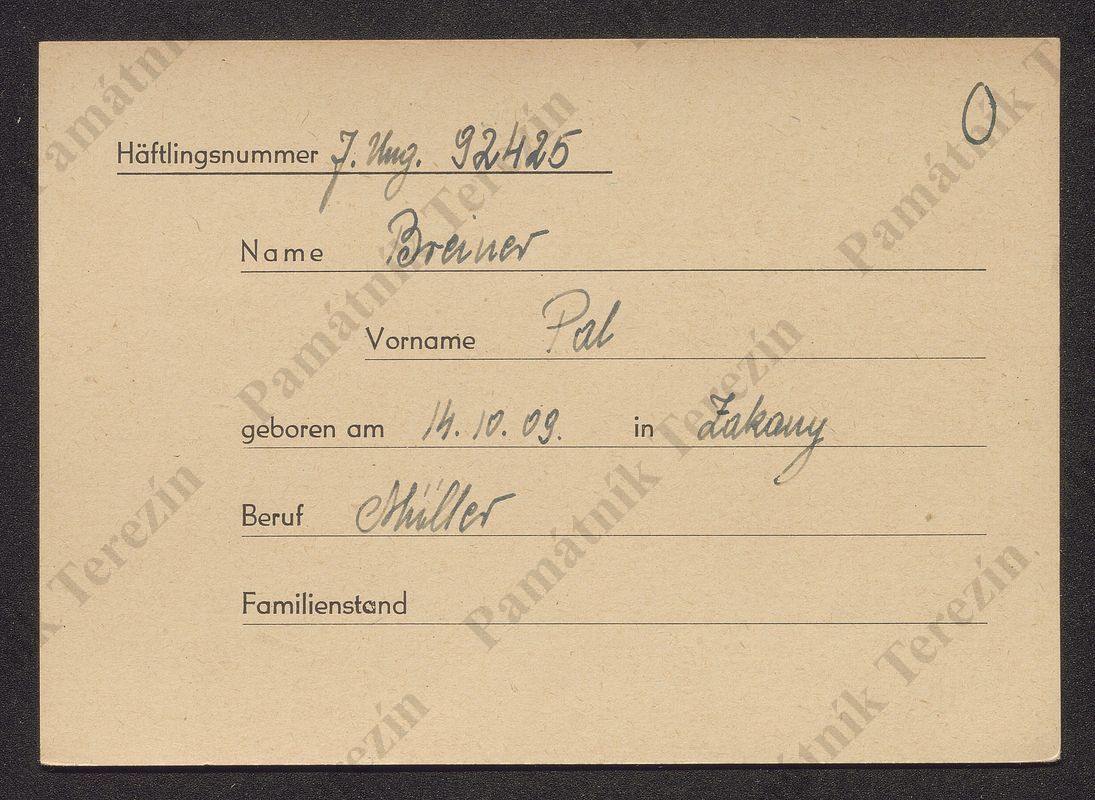 O
Häftlingsnummer J. Ung. 92425
Name Breiner
Vorname Pal
geboren am 14. 10. 09. in Zakany
Beruf Müller
Familienstand
Památník Terezín